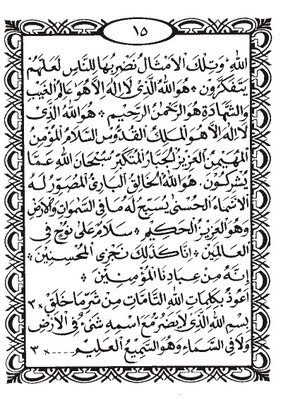 ١٥
اللهِ وَتِلْكَ الْأَمْثَالُ نَضْرِبُهَا لِلنَّاسِ لَعَلَّهُمْ
يَتَفَكَّرُونَ * هُوَ اللهُ الَّذِي لَا إِلٰهَ إِلَّا هُوَ عَالِمُ الْغَيْبِ
وَالشَّهَادَةِ هُوَ الرَّحْمٰنُ الرَّحِيمُ * هُوَ اللهُ الَّذِي
لَا إِلٰهَ إِلَّا هُوَ الْمَلِكُ الْقُدُّوسُ السَّلَامُ الْمُؤْمِنُ
الْمُهَيْمِنُ الْعَزِيزُ الْجَبَّارُ الْمُتَكَبِّرُ سُبْحَانَ اللهِ عَمَّا
يُشْرِكُونَ * هُوَ اللهُ الْخَالِقُ الْبَارِئُ الْمُصَوِّرُ لَهُ
الْأَسْمَاءُ الْحُسْنٰى يُسَبِّحُ لَهُ مَا فِي السَّمٰوَاتِ وَالْأَرْضِ
وَهُوَ الْعَزِيزُ الْحَكِيمُ * سَلَامٌ عَلَى نُوحٍ فِي
الْعَالَمِينَ * إِنَّا كَذٰلِكَ نَجْزِي الْمُحْسِنِينَ *
إِنَّهُ مِنْ عِبَادِنَا الْمُؤْمِنِينَ *
أَعُوذُ بِكَلِمَاتِ اللهِ التَّامَّاتِ مِنْ شَرِّ مَا خَلَقَ * ٣×
بِسْمِ اللهِ الَّذِي لَا يَضُرُّ مَعَ اسْمِهِ شَيْءٌ فِي الْأَرْضِ
وَلَا فِي السَّمَاءِ وَهُوَ السَّمِيعُ الْعَلِيمُ ....× ٣